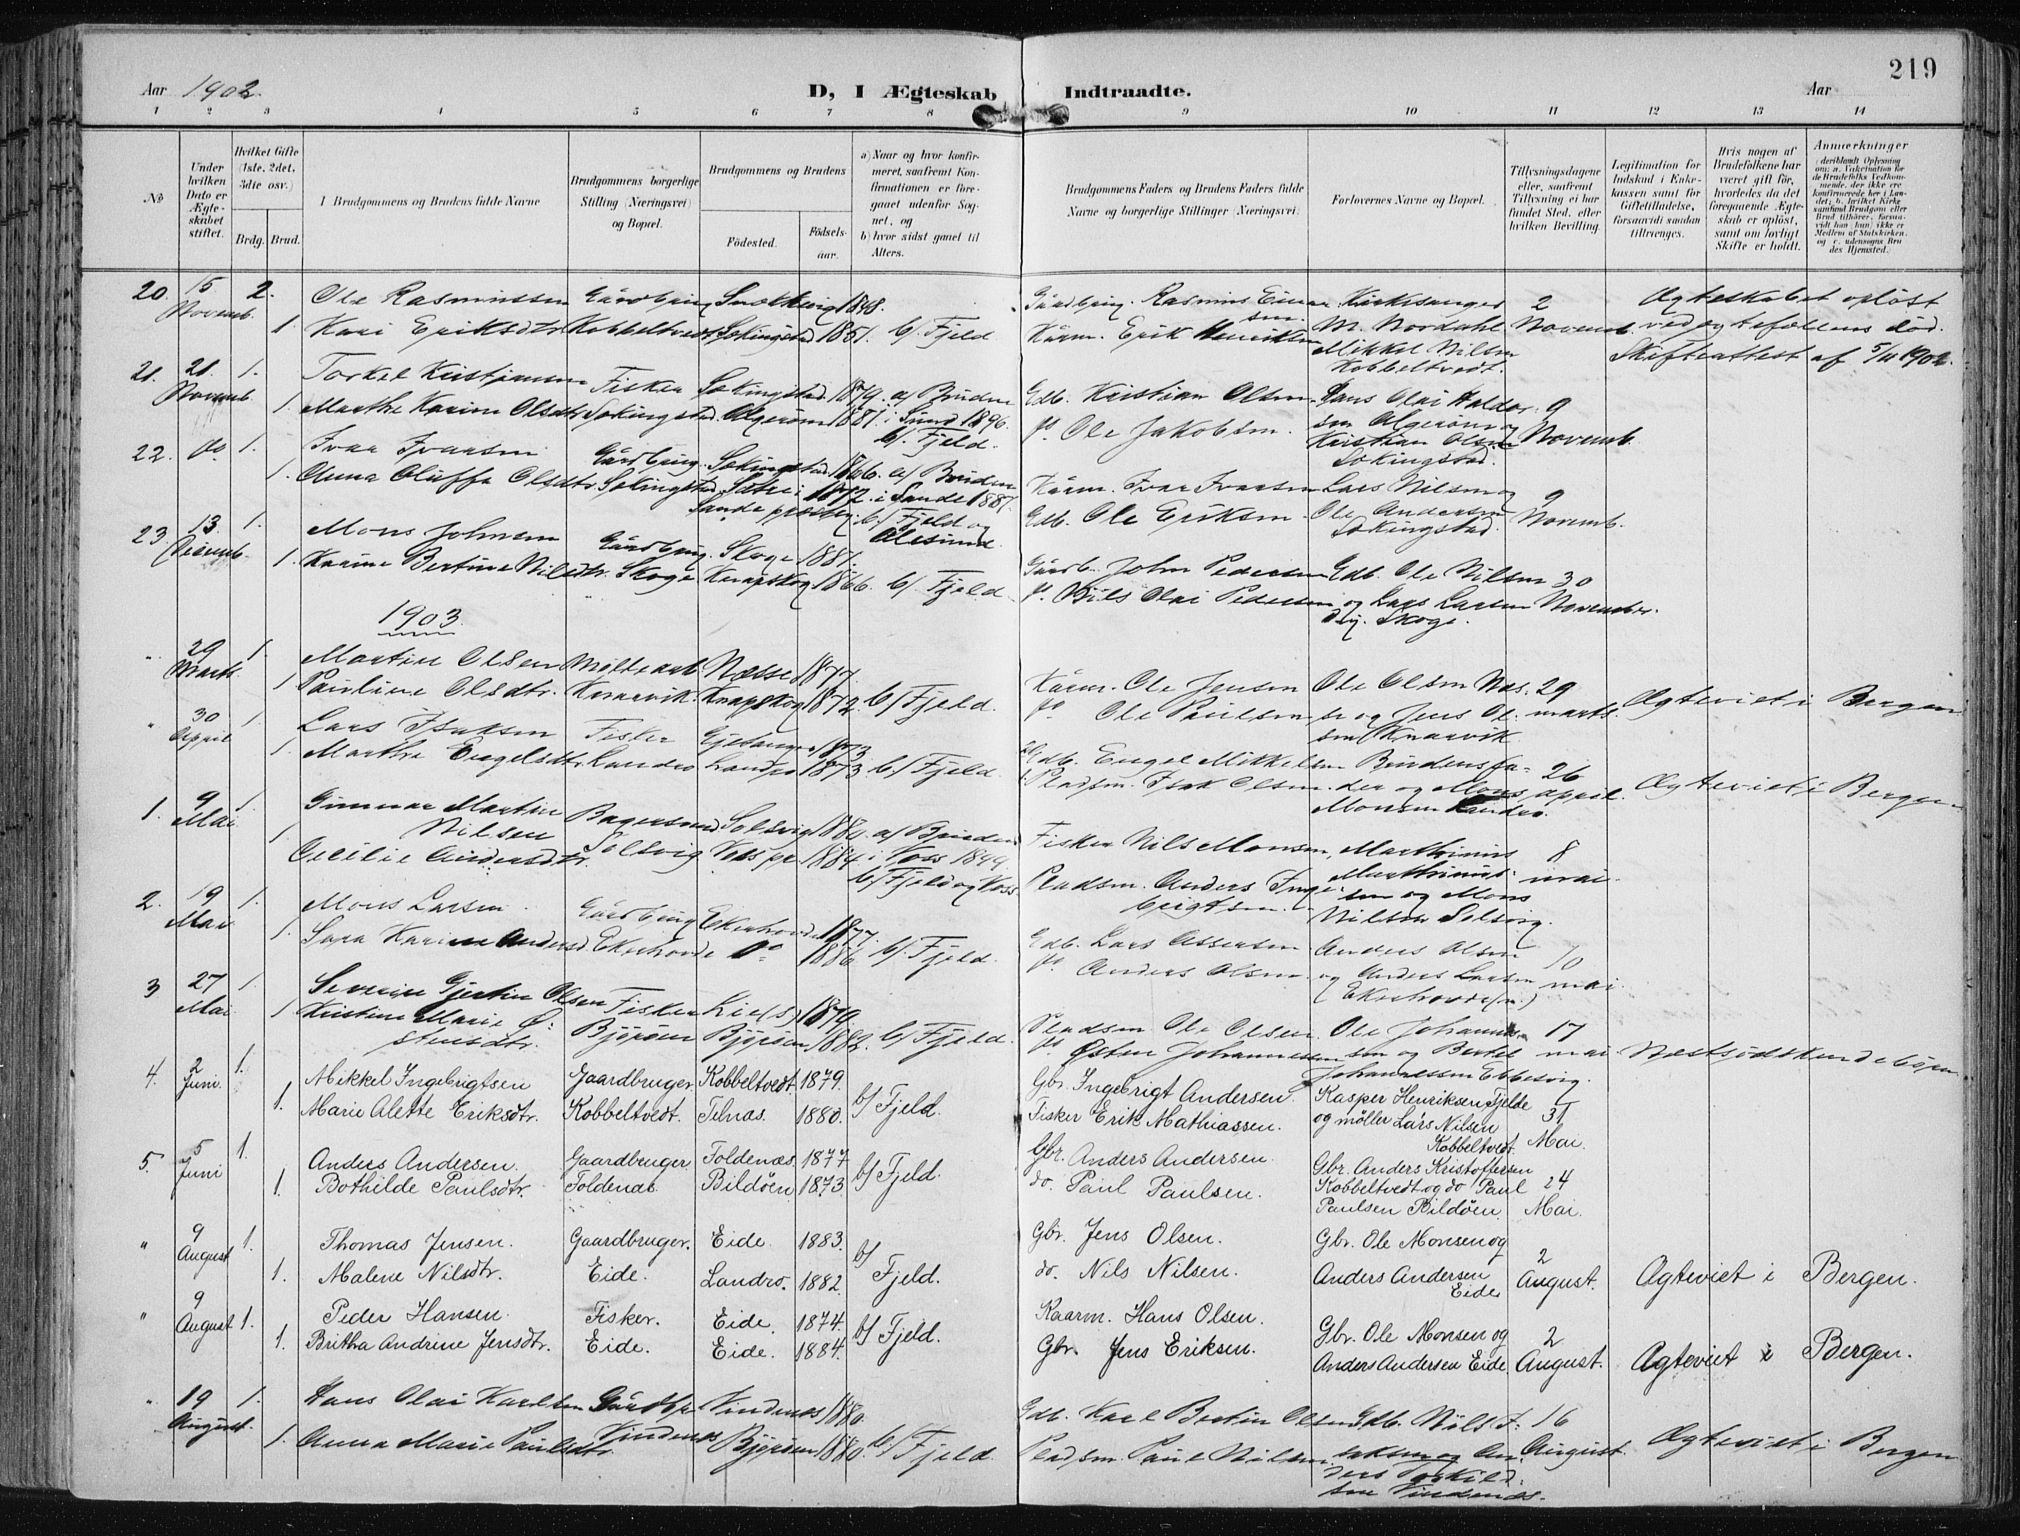 219
Aar 1902. D, I Ægteskab Indtraadte. Aar
1 2 3 4 5 6 7 8 9 10 11 12 13 14
No
Under hvilken Dato er Ægteskabet stiftet.
Hvilket Gifte (1ste, 2det, 3die osv.)
Brdg. Brud.
Brudgommens og Brudens fulde Navne
Brudgommens borgerlige Stilling (Næringsvei) og Bopæl.
Brudgommens og Brudens
Fødested. Fødselsaar.
a) Naar og hvor konfirmeret, saafremt Konfirmationen er foregaaet udenfor Sognet, og
b) hvor sidst gaaet til Alters.
Brudgommens Faders og Brudens Faders fulde Navne og borgerlige Stillinger (Næringsvei)
Forlovernes Navne og Bopæl.
Tillysningsdagene eller, saafremt Tillysning ei har fundet Sted, efter hvilken Bevilling.
Legitimation for Indskud i Enkekassen samt for Giftetilladelse, forsaavidt saadan tiltrænges.
Hvis nogen af Brudefolkene har været gift før, hvorledes da det foregaaende Ægteskab er opløst, samt om lovligt Skifte er holdt.
Anmærkninger
20. 15 2. Ole Rasmussen Gårdbrug. 1848. Gårdbrug. Rasmus Kirkesanger 2 Ægteskabet opløst
Novemb. 1 Kari Eriksdtr. Kobbeltvedt Sekingstad 1851. b/ Fjeld Kårm. Erik Henriksen M. Nordahl Novemb. ved ægtefællens død.
Mikkel Nilsen Skifteattest af 5/11 1902.
Kobbeltvedt.
21. 21. 1. Torkel Kristiansen Fisker Sekingstad 1879. a/ Bruden Gdb. Kristian Olsen Hans Olai Haldor- 9
Novemb. 1. Marthe Karine Olsdtr. Sekingstad Algerøen 1881. i Sund 1896. do Ole Jakobsen. sen Algerøen og Novemb.
b/ Fjeld. Kristian Olsen
Sekingstad.
22. do. 1. Ivar Ivarsen Gårdbrug. Sekingstad 1866. a/ Bruden Kårm. Ivar Ivarsen Lars Nilsen og 9
1. Anna Oluffa Olsdtr. Sekingstad. 1872. i Sande 1887. Gdb. Ole Eriksen Ole Andersen Novemb.
Sande præsteg. b/ Fjeld og Sekingstad.
Ålesund.
23. 13 1. Mons Johnsen Gårdbrug. Skoge 1881. Gårdb. John Pedersen Gdb. Ole Nilsen 30
Decemb. 1. Karine Bertine Nilsdtr. Skoge Knapskog 1866. b/ Fjeld do. Nils Olai Pedersen og Lars Larsen November.
Skoge.
1903.
" 29 1. Martin Olsen Næsse 1877. Kårm. Ole Jensen Ole Olsen Næs- 29
Marts. 1 Pauline Olsdtr. Knarvik. Knapskog 1872. b/ Fjeld. do Ole Paulsen se og Jens Ol- marts. Ægteviet i Bergen
sen Knarvik
" 30 1 Lars Isaksen Fisker 1873 Gdb. Engel Mikkelsen Brudens fa- 26
April 1 Marthe Engelsdtr. Landro Landro 1873 b/ Fjeld. Pladsm. Isak Olsen. der og Mons april. Ægteviet i Bergen
Monsen Landro.
1. 9 1. Gunnar Martin Bagersvend Solsvig 1880. a/ Bruden Fisker Nils Monsen, Marthinus 8
Mai. Nilsen Solsvig Voss pr. 1884. i Voss 1899. Pladsm. Anders Inge- Marthinus- mai
1 Cecilie Andersdtr. b/ Fjeld og Voss brigtsen. sen og Mons
Nilsen Solsvig.
2. 19 1. Mons Larsen. Gårdbrug Ekerhovde 1877. Gdb. Lars Assersen Anders Olsen 10
Mai 1. Sara Karine Andersd. Ekerhovde do 1886. b/ Fjeld. do Anders Olsen. og Anders Larsen mai.
(Ekerhovde)
3 27 1 Severin Gjertin Olsen Fisker Lie(s) 1879. Pladsm. Ole Olsen. Ole Johannes- 17
Mai. 1 Kristine Marie Ø- Bjørøen Bjørøen 1882. b/ Fjeld. do Østen Johannessen sen og Bertel mai. Næstsødskendebørn
stensdtr. Johannessen Ebbesvig.
4. 2 1. Mikkel Ingebrigtsen Gaardbruger Kobbeltvedt 1879. b/ Fjeld. Gbr. Ingebrigt Andersen Kasper Henriksen Fjelde
Juni. 1. Marie Alette Eriksdtr. Kobbeltvedt. Telnæs. 1880. Fisker Erik Mathiassen. og møller Lars Nilsen 31
Kobbeltvedt. Mai.
5. 5 1. Anders Andersen. Gaardbruger Foldenæs. 1877 b/ Fjeld. Gbr. Anders Andersen. Gbr. Anders Kristoffersen
Juni 1. Bothilde Paulsdtr. Foldenæs Bildøen 1873 do. Paul Paulsen. Kobbeltvedt og do Paul 24
Paulsen Bildøen. Mai.
" 9 1. Thomas Jensen. Gaardbruger. Eide. 1883. b/ Gbr. Jens Olsen. Gbr. Ole Monsen og 2
August 1. Malene Nilsdtr. Eide. Landro. 1882. Fjeld. do. Nils Nilsen. Anders Andersen August. Ægteviet i Bergen.
Eide
" 9 1. Peder Hansen. Fisker. Eide. 1874. b/ Fjeld. Kaarm. Hans Olsen. Gbr. Ole Monsen og 2
August 1. Britha Andrine Jensdtr. Eide. Eide. 1884. Gbr. Jens Eriksen. Anders Andersen Eide August. Ægteviet i Bergen.
" 19 1. Hans Olai Karlsen Gårdbr. Vindenes 1880. Gdb. Karl Bertin Olsen Gdb. Nils I- 16
August. 1. Anna Marie Paulsdtr. Vindenes Bjørøen 1880. b/ Fjeld. Pladsm. Paul Nilsen saksen og An- August. Ægteviet i Bergen
ders Torkild-
sen Vindenes.